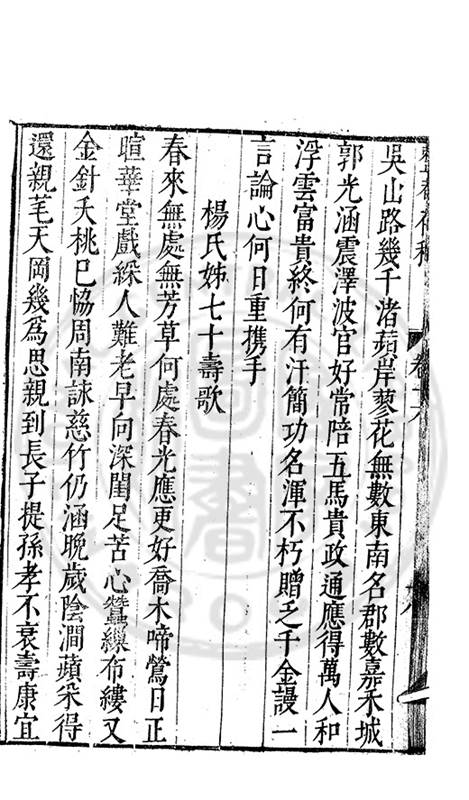 吳山路幾千渚蘋岸蓼花無數東南名郡數嘉禾城
郭光涵震澤波官好常陪五馬貴政通應得萬人和
浮雲富貴終何有汗簡功名渾不朽贈乏千金謾一
言論心何日重携手
楊氏姊七十壽歌
春來無處無芳草何處春光應更好喬木啼鶯日正
暄華堂戲綵人難老早向深閨足苦心蠶繅布縷又
金針夭桃已恊周南詠慈竹仍涵晚歲陰澗蘋采得
還親芼天岡幾為思親到長子提孫孝不衰壽康宜